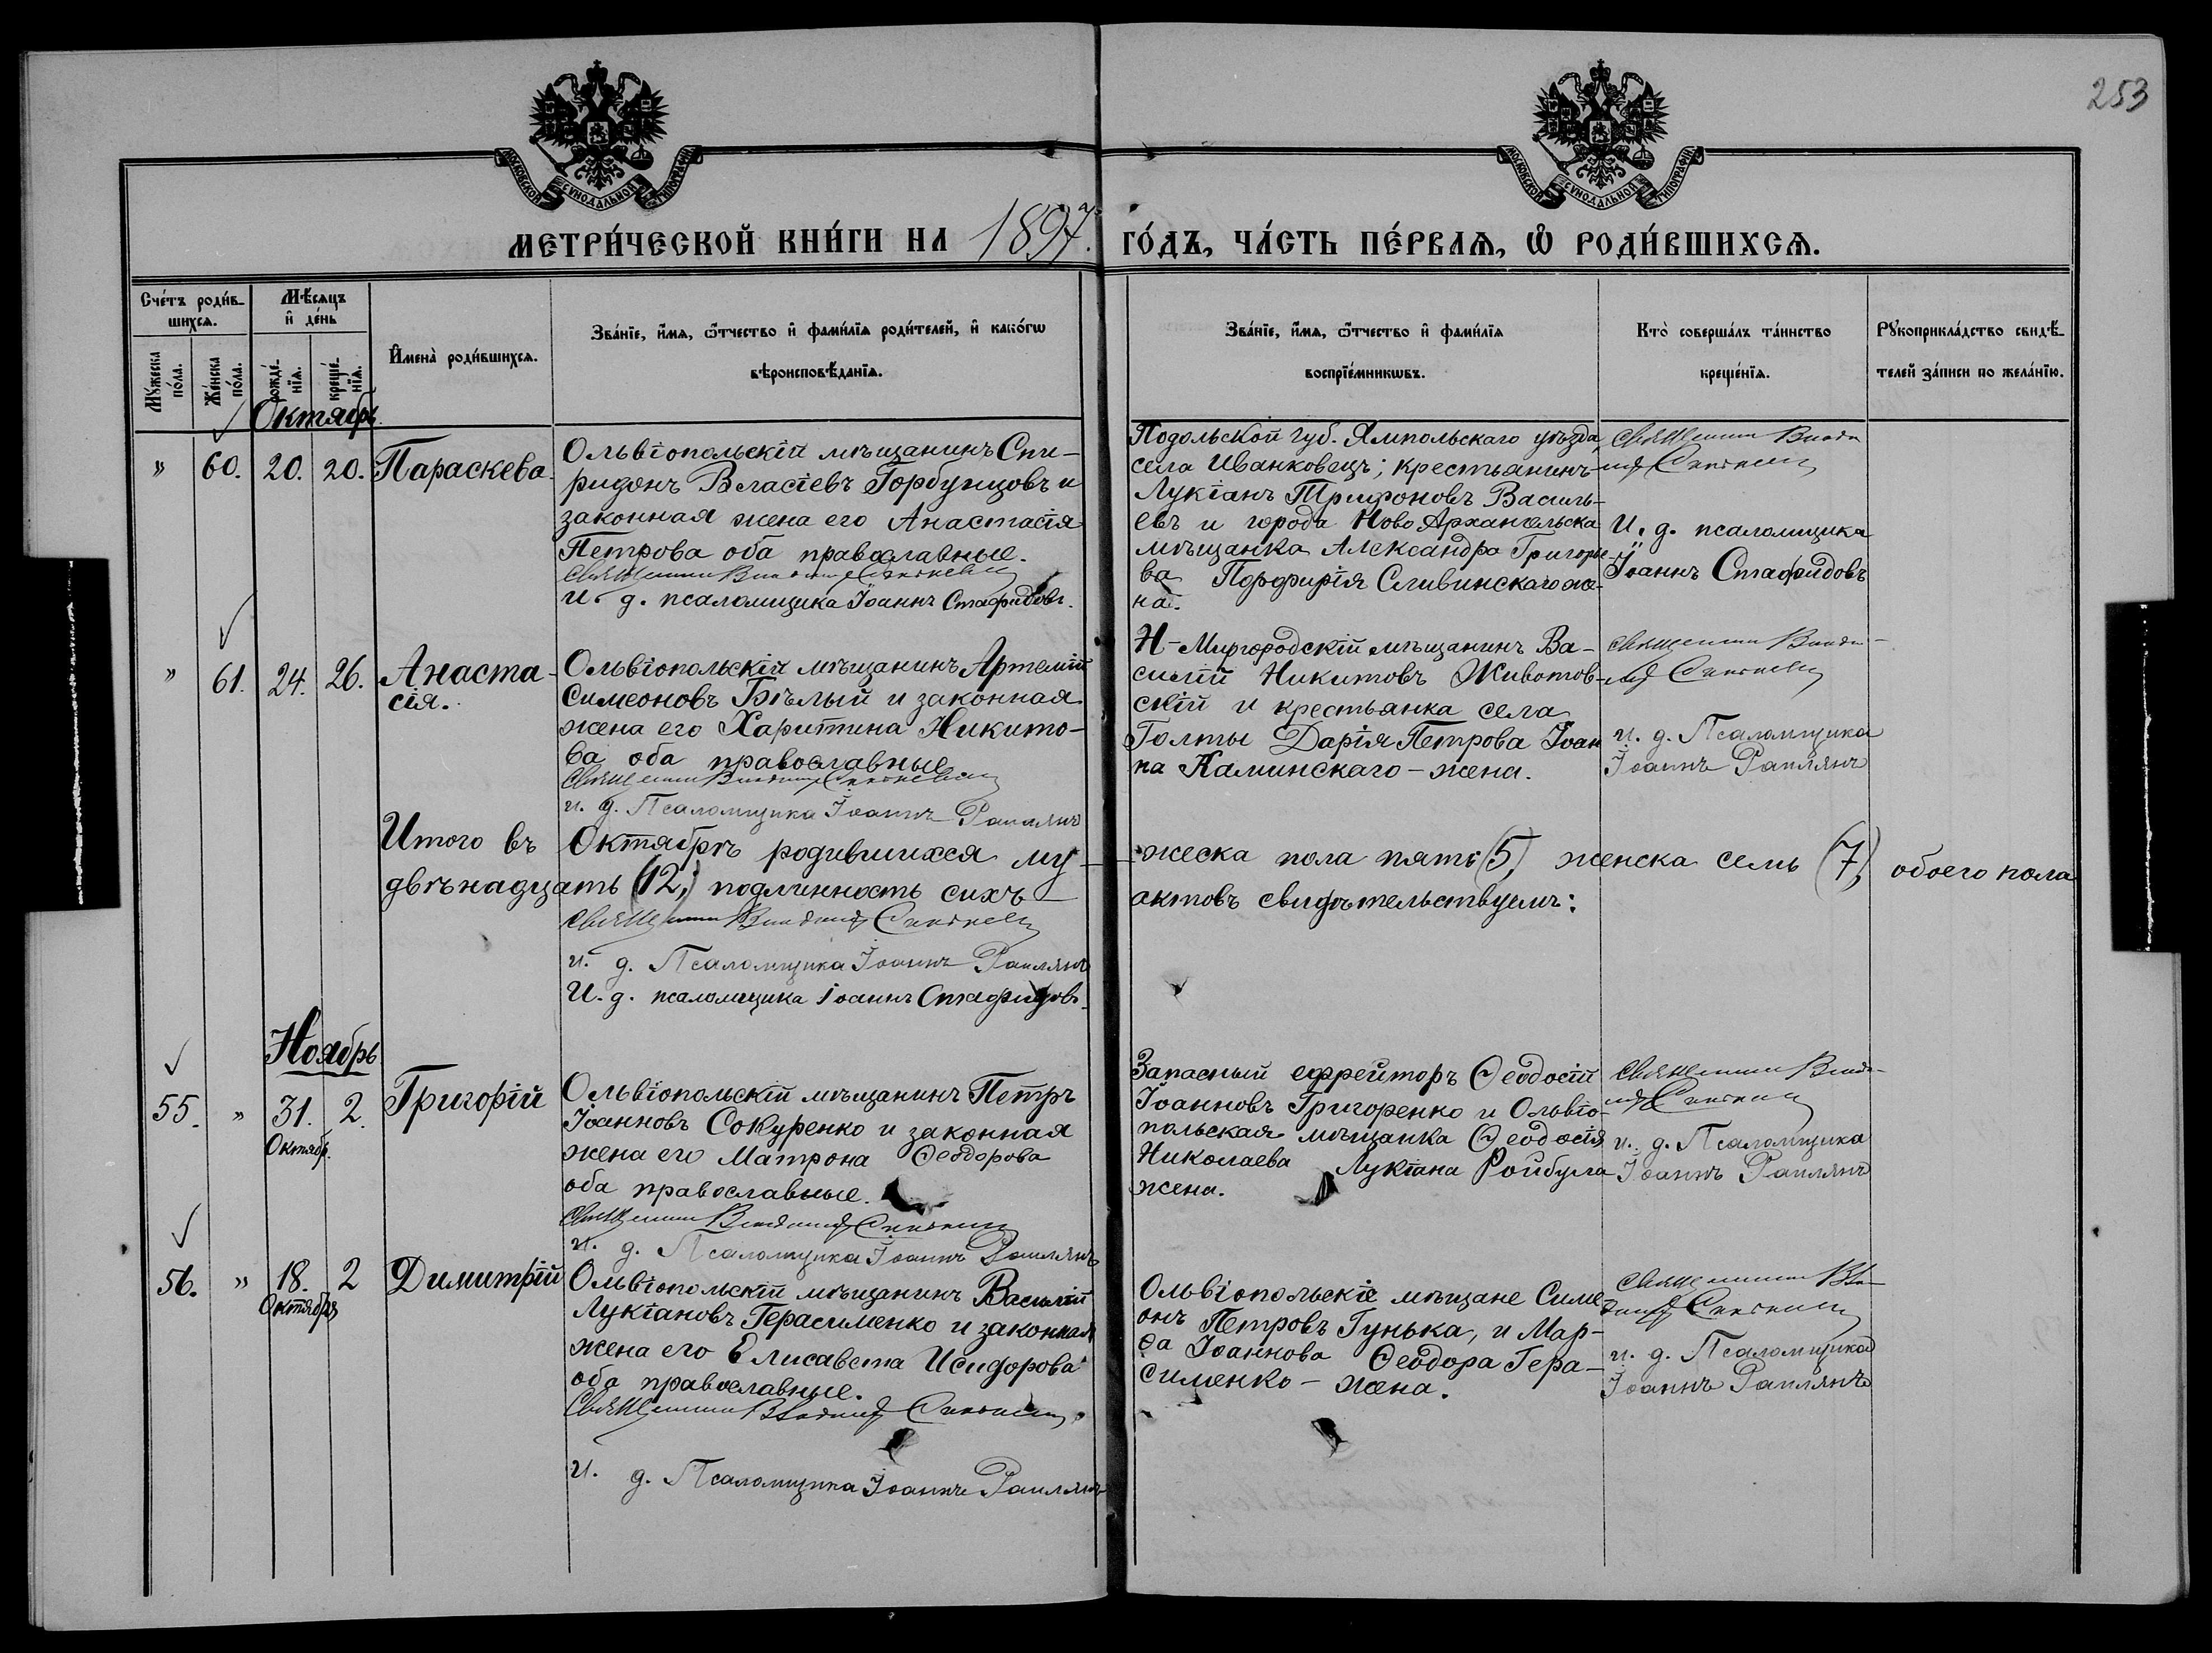 253
МОСКОВСКОЙ СѴНОДАЛЬНОЙ ТИПОГРАФІИ
МОСКОВСКОЙ СѴНОДАЛЬНОЙ ТИПОГРАФІИ
МЕТРИ́ЧЕСКОЙ КНИ́ГИ НА 1897. ГО́ДЪ, ЧА́СТЬ ПЕ́РВАѦ, Ѡ РОДИ́ВШИХСѦ.
Сче́тъ роди́в-
шихсѧ.
Мѣ́сѧцъ
и де́нь
Мꙋжеска
по́ла.
Же́нска
по́ла.
рожде́-
нїѧ.
креще́-
нїѧ.
Имена̀ роди́вшихсѧ.
Зва́нїе, и́мѧ, ѻ́тчество и фами́лїѧ роди́телей, и како́гѡ
вѣроисповѣ́данїѧ.
Зва́нїе, и́мѧ, ѻ́тчество и фами́лїѧ
воспрїе́мникѡвъ.
Кто̀ соверша́лъ та́инство
креще́нїѧ.
Рꙋкоприкла́дство свидѣ́-
телей за́писи по жела́нїю.
Октябрь.
" 60. 20. 20. Параскева.
Ольвіопольскій мѣщанинъ Спи-
ридонъ Власіевъ Горбунцовъ и
законная жена его Анастасія
Петрова оба православные.
Священникъ
И. д. псаломщика Іоаннъ Стафидовъ.
Подольской губ. Ямпольскаго уѣзда,
села Иванковецъ; крестьянинъ
Лукіанъ Трифоновъ Василь-
евъ и города Ново Архангельска
мѣщанка Александра Григорье-
ва Порфирія Сливинскаго же-
на.
Священникъ
И. д. псаломщика
Іоаннъ Стафидовъ
" 61. 24. 26. Анаста-
сія.
Ольвіопольскій мѣщанинъ Артемій
Симеоновъ Бѣлый и законная
жена его Харитина Никито-
ва оба православные
Священникъ
и. д. Псаломщика Іоаннъ
Н-Миргородскій мѣщанинъ Ва-
силій Никитовъ Животов-
скій и крестьянка села
Голты Дарія Петрова Іоан
на Каминскаго - жена.
Священникъ
и. д. Псаломщика
Іоаннъ
Итого въ Октябрѣ родившихся му- -жеска пола пять (5), женска семь (7), обоего пола
двѣнадцать (12;) подлинность сихъ актовъ свидѣтельствуемъ:
Священникъ
и. д. Псаломщика Іоаннъ
И. д. псаломщика Іоаннъ Стафидовъ.
Ноябрь
55. " 31. 2. Григорій
Октябр.
Ольвіопольскій мѣщанинъ Петръ
Іоанновъ Сокуренко и законная
жена его Матрона Ѳеодорова
оба православные.
Священникъ
и. д. Псаломщика Іоаннъ
Запасный ефрейторъ Ѳеодосій
Іоанновъ Григоренко и Ольвіо-
польская мѣщанка Ѳеодосія
Николаева Лукіана Ройбула
жена.
Священникъ
и. д. Псаломщика
Іоаннъ
56. " 18. 2 Димитрій
Октября
Ольвіопольскій мѣщанинъ Василій
Лукіановъ Герасименко и законная
жена его Елисавета Исидорова
оба православные.
Священникъ
И. д. Псаломщика Іоаннъ
Ольвіопольскіе мѣщане Симе-
онъ Петровъ Гунька, и Мар-
ѳа Іоаннова Ѳеодора Гера-
сименко - жена.
Священникъ
и. д. Псаломщика
Іоаннъ